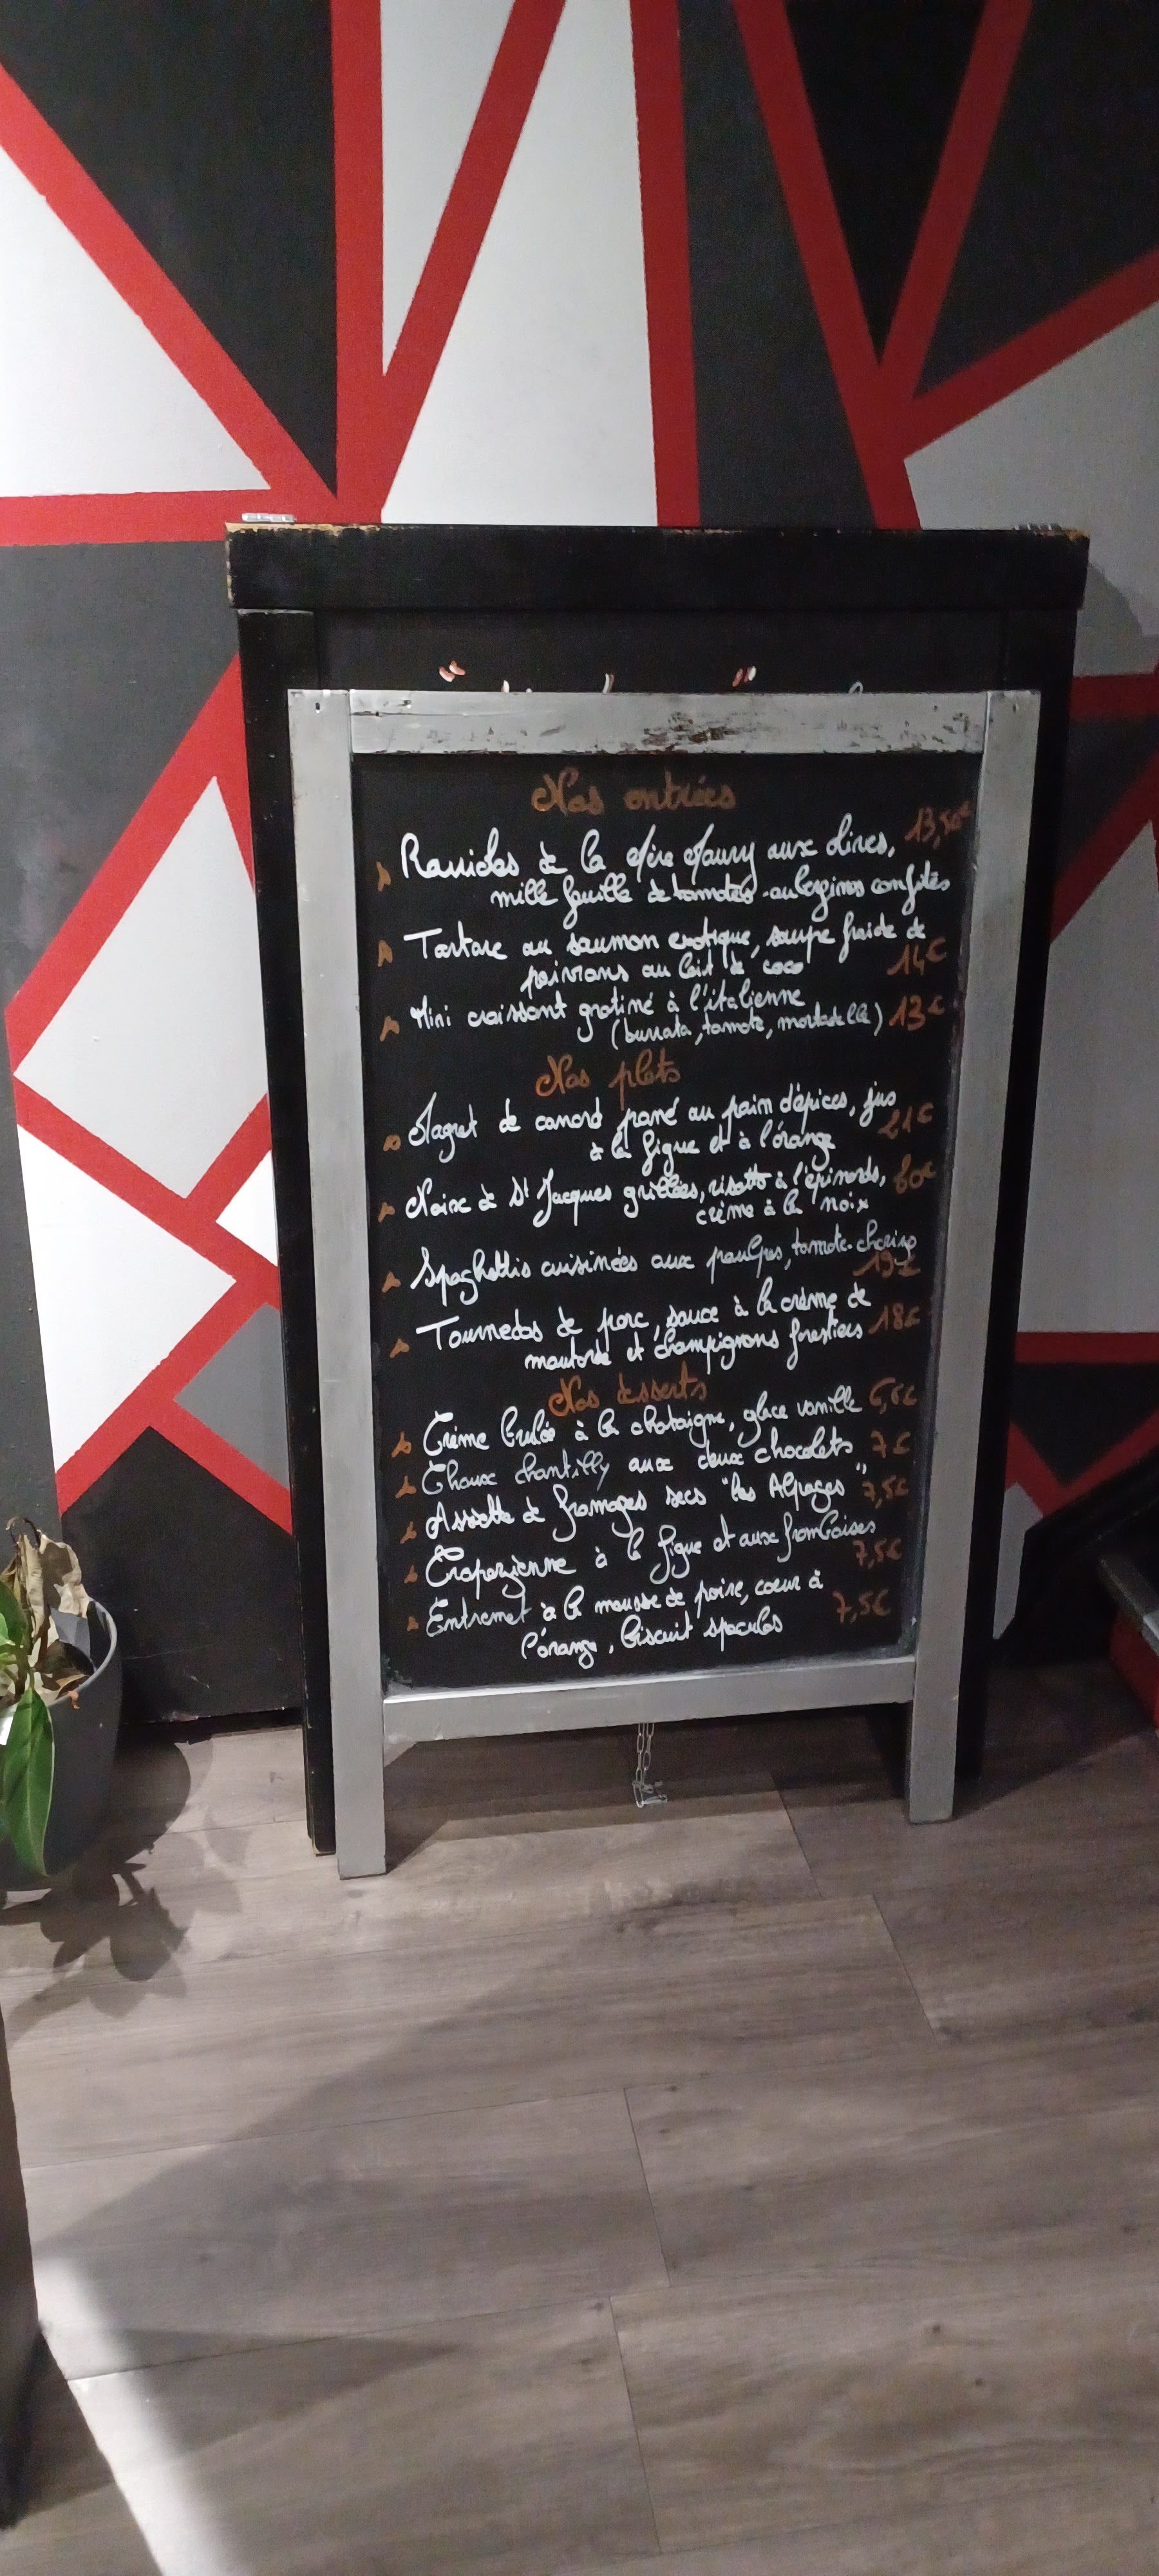 Nos entrées
Ravioles de la Mère Maury aux olives, 13,50€
mille feuille de tomates-aubergines confites
Tartare au saumon exotique, soupe froide de
poivrons au lait de coco 14€
Mini croissant gratiné à l'italienne
(burrata, tomate, mortadelle) 13€
Nos plats
Magret de canard pané au pain d'épices, jus
à la figue et à l'orange 21€
Noix de St Jacques grillées, risotto à l'épinards,
crème à la noix
Spaghettis cuisinées aux poulpes, tomate-chorizo
19€
Tournedos de porc, sauce à la crème de
moutarde et champignons forestiers 18€
Nos desserts
Crème brulée à la chataigne, glace vanille
Choux chantilly aux deux chocolats 7€
Assiette de fromages secs "les Alpages" 7,5€
Tropezienne à la figue et aux framboises
7,5€
Entremet à la mousse de poire, coeur à
l'orange, biscuit speculos 7,5€